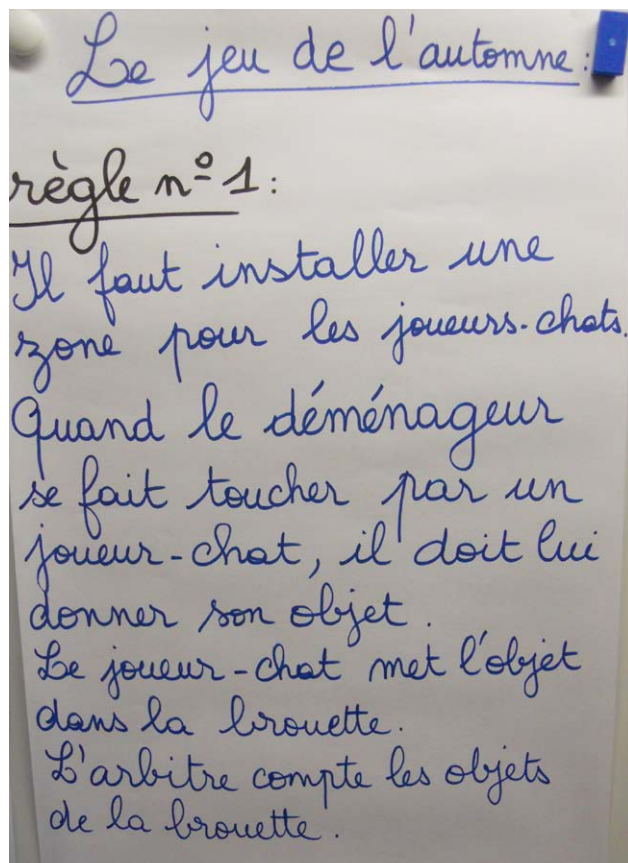 Le jeu de l'automne :
règle nº 1 :
Il faut installer une
zone pour les joueurs-chats.
Quand le déménageur
se fait toucher par un
joueur-chat, il doit lui
donner son objet.
Le joueur-chat met l'objet
dans la brouette.
L'arbitre compte les objets
de la brouette.